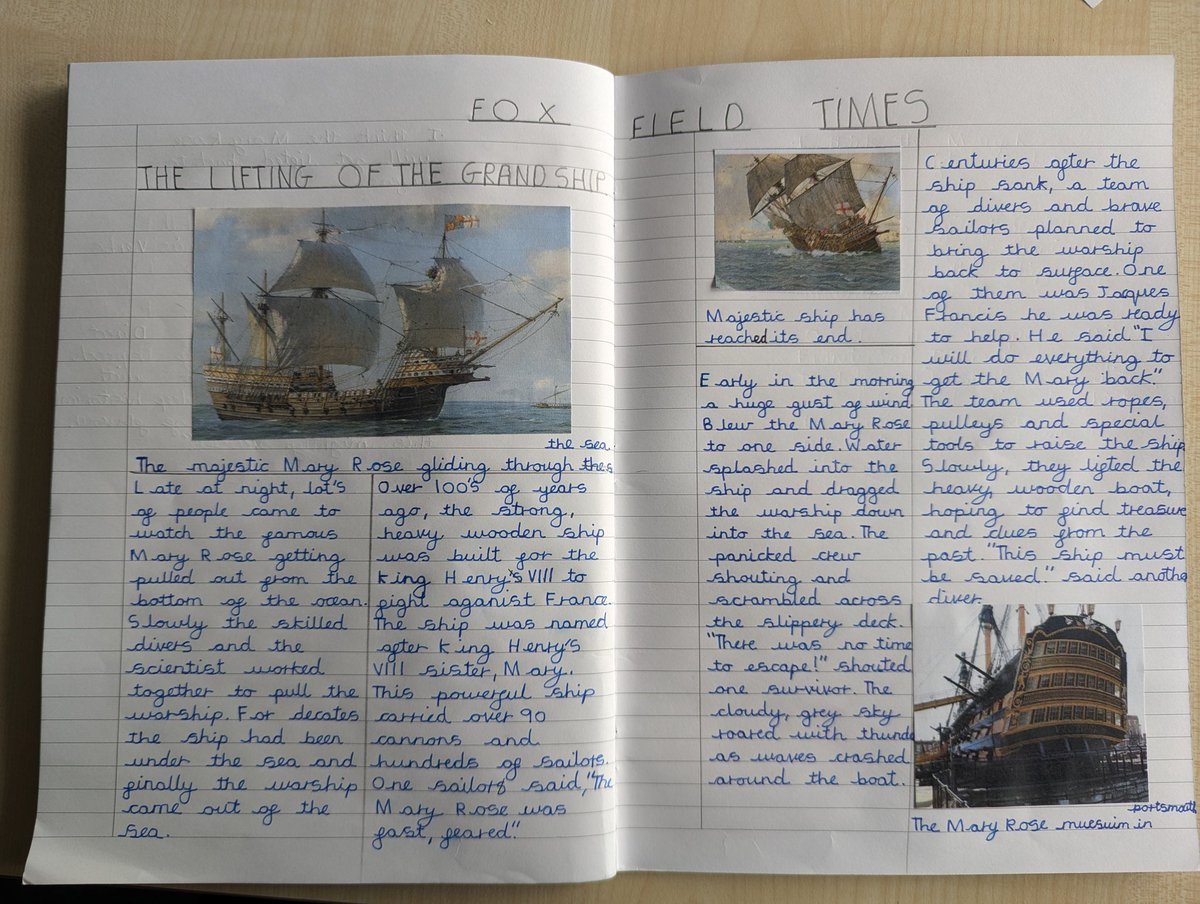 FOX FIELD TIMES
THE LIFTING OF THE GRAND SHIP
the sea.
The majestic Mary Rose gliding through the
Late at night, lot's
of people came to
watch the famous
Mary Rose getting
pulled out from the
bottom of the ocean.
Slowly the skilled
divers and the
scientist worked
together to pull the
warship. For decates
the ship had been
under the sea and
finally the warship
came out of the
sea.
Over 100's of years
ago, the strong,
heavy wooden ship
was built for the
king Henry's VIII to
fight aganist France.
The ship was named
after king Henry's
VIII sister, Mary.
This powerful ship
carried over 90
cannons and
hundreds of sailors.
One sailors said, "The
Mary Rose was
fast, feared."
Majestic ship has
reached its end.
Early in the morning
a huge gust of wind
Blew the Mary Rose
to one side. Water
splashed into the
ship and dragged
the warship down
into the sea. The
panicked crew
shouting and
scrambled across
the slippery deck.
"There was no time
to escape!" shouted
one survivor. The
cloudy, grey sky
roared with thunde
as waves crashed
around the boat.
Centuries after the
ship sank, a team
of divers and brave
sailors planned to
bring the warship
back to surface. One
of them was Jacques
Francis he was ready
to help. He said "I
will do everything to
get the Mary back."
The team used ropes,
pulleys and special
tools to raise the ship
Slowly, they lifted the
heavy, wooden boat,
hoping to find treasure
and clues from the
past. "This ship must
be saved." said anothe
diver.
portsmouth
The Mary Rose muesuim in